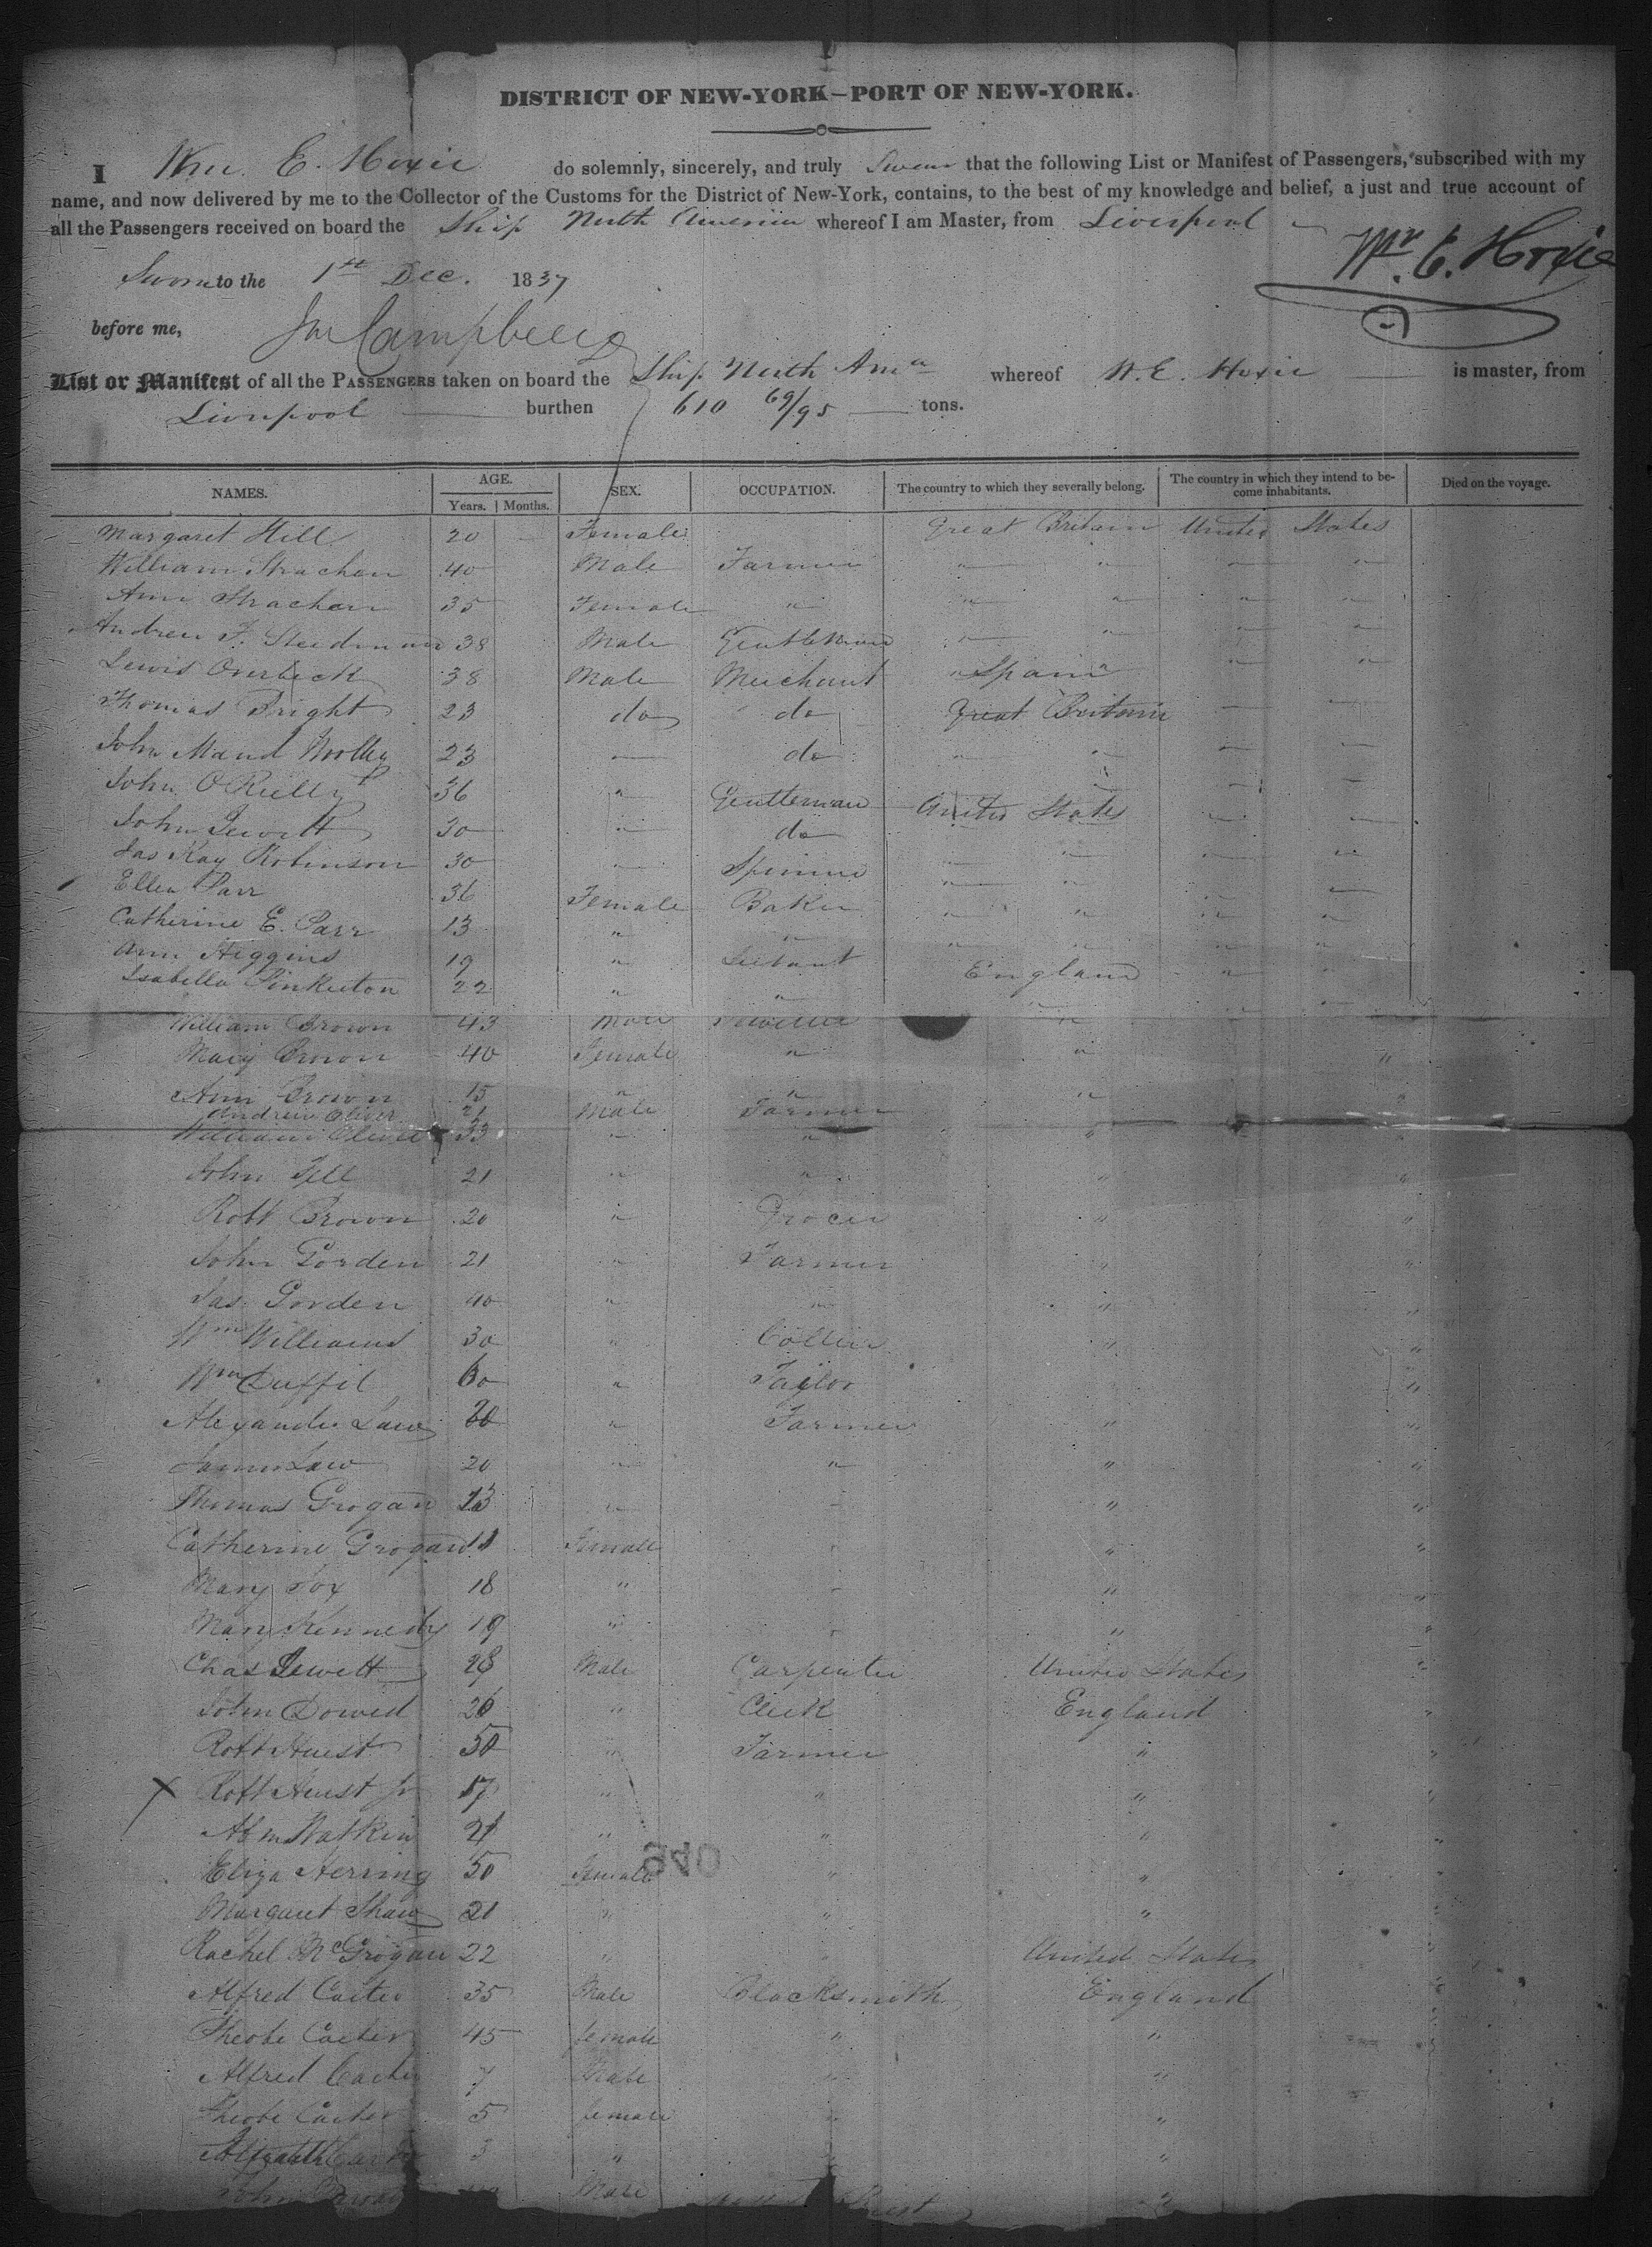 DISTRICT OF NEW-YORK—PORT OF NEW-YORK.
I Wm. E. Hoxie do solemnly, sincerely, and truly Swear that the following List or Manifest of Passengers, subscribed with my
name, and now delivered by me to the Collector of the Customs for the District of New-York, contains, to the best of my knowledge and belief, a just and true account of
all the Passengers received on board the Ship North America whereof I am Master, from Liverpool
Wm. E. Hoxie
Sworn to the 1st Dec. 1837
before me, Campbell
List or Manifest of all the PASSENGERS taken on board the Ship North Ama whereof W. E. Hoxie is master, from
Liverpool burthen 610 69/95 tons.
NAMES. AGE. Years. Months. SEX. OCCUPATION. The country to which they severally belong. The country in which they intend to become inhabitants. Died on the voyage.
Margaret Hill 20 Female Great Britain United States
William Strachan 40 Male Farmer " " " "
Ann Strachan 35 Female " " " " "
Andrew F. Steedman 38 Male Gentleman " " " "
Lewis Overbeck 38 Male Merchant " Spain " " "
Thomas Bright 23 do do Great Britain " "
John Maud Woolley 23 " do " " " "
John O Rielly 36 " Gentleman " " " "
John Jewett 30 " do United States " "
Jas Kay Robinson 30 " " " " "
Ellen Parr 36 Female Baker " " " "
Catherine E. Parr 13 " " " " " "
Ann Higgins 19 " " " " "
Isabella Pinkerton 22 " " England " "
William Brown 43 Male "
Mary Brown 40 Female " " "
Ann Brown 15 " " " "
Andrew Oliver 21 Male Farmer
William Oliver 33 " " " "
John 21 " " " "
Robt Brown 20 " Grocer " "
John Gorden 21 " Farmer " "
Jas. Gorden 40 " " " "
Wm Williams 30 " Collier " "
Wm Duffil 60 " Tailor "
Alexander Law " Farmer " "
James Law 20 " " " "
Thomas Grogan " " " "
Catherine Grogan 11 Female " "
Mary Fox 18 " " "
Mary Kennedy 19 " " "
Chas Jewett 28 Male Carpenter United States "
John Dowed 26 " Clerk England "
Robt Hurst 50 " Farmer " "
X Robt Hurst Jr 17 " " " "
Abm Watkin " " " "
Eliza Herring 50 Female " " "
040
Margaret Shaw 21 " " "
Rachel McGrogan 22 " " United States
Alfred Carter 35 Male Blacksmith England "
Pheobe Carter 45 female " "
Alfred Carter 7 Male " "
Pheobe Carter 5 female " "
Carter 3 " "
John Male "